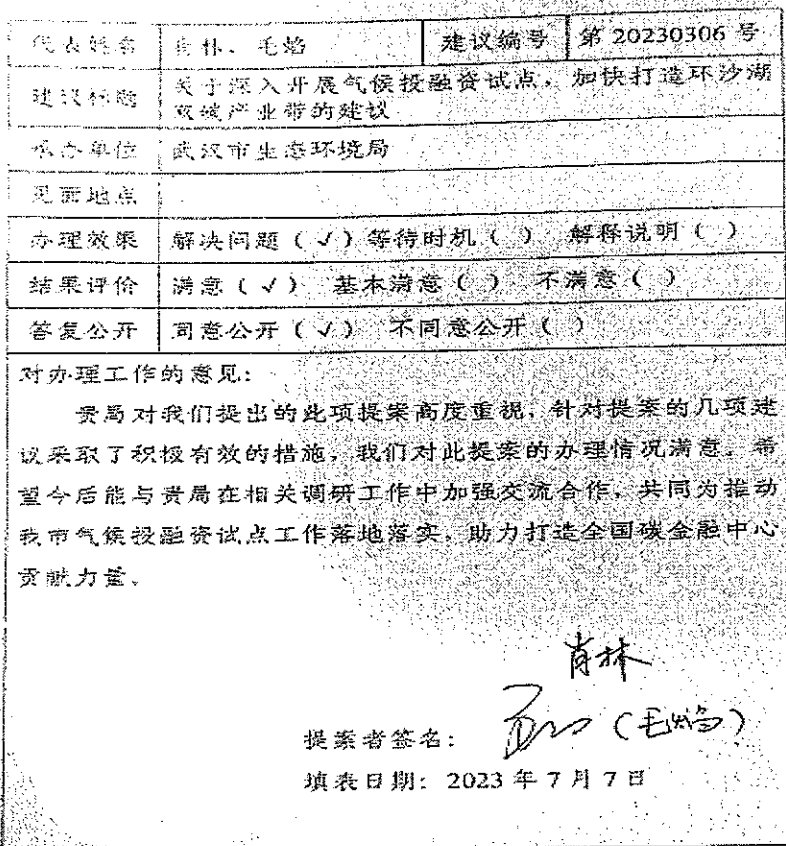 代表姓名 肖林、毛焰 建议编号 第 20230306 号
建议标题 关于深入开展气候投融资试点，加快打造环沙湖
双碳产业带的建议
承办单位 武汉市生态环境局
见面地点
办理效果 解决问题（✓）等待时机（ ） 解释说明（ ）
结果评价 满意（✓） 基本满意（ ） 不满意（ ）
答复公开 同意公开（✓） 不同意公开（ ）
对办理工作的意见：
贵局对我们提出的此项提案高度重视，针对提案的几项建
议采取了积极有效的措施，我们对此提案的办理情况满意。希
望今后能与贵局在相关调研工作中加强交流合作，共同为推动
我市气候投融资试点工作落地落实，助力打造全国碳金融中心
贡献力量。
肖林
提案者签名： （毛焰）
填表日期：2023 年 7 月 7 日